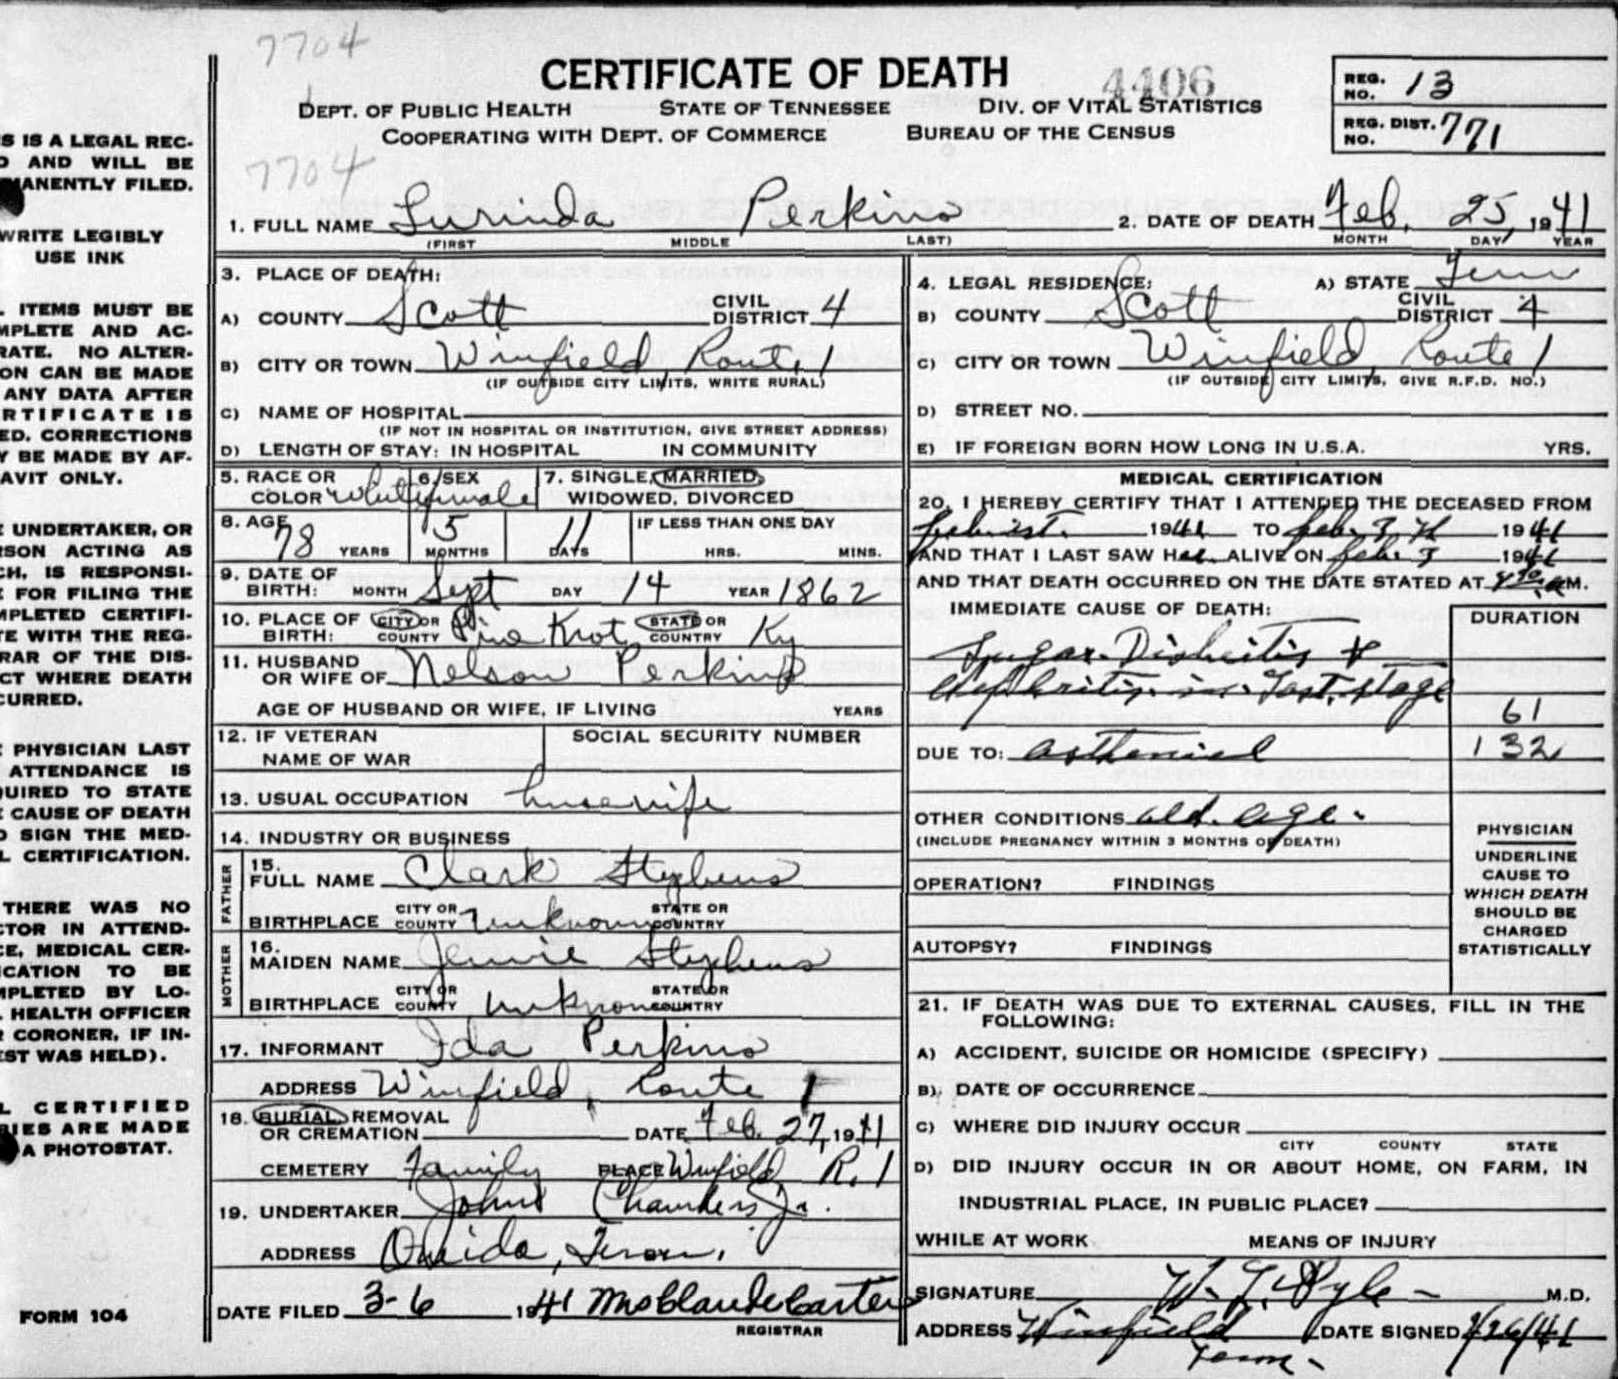 7704
CERTIFICATE OF DEATH
4406
DEPT. OF PUBLIC HEALTH STATE OF TENNESSEE DIV. OF VITAL STATISTICS
COOPERATING WITH DEPT. OF COMMERCE BUREAU OF THE CENSUS
REG. NO. 13
REG. DIST. NO. 771
7704
S IS A LEGAL REC-
D AND WILL BE
MANENTLY FILED.
WRITE LEGIBLY
USE INK
L ITEMS MUST BE
MPLETE AND AC-
RATE. NO ALTER-
ON CAN BE MADE
ANY DATA AFTER
RTIFICATE IS
ED. CORRECTIONS
Y BE MADE BY AF-
AVIT ONLY.
E UNDERTAKER, OR
RSON ACTING AS
CH, IS RESPONSI-
E FOR FILING THE
MPLETED CERTIFI-
TE WITH THE REG-
RAR OF THE DIS-
CT WHERE DEATH
CURRED.
E PHYSICIAN LAST
ATTENDANCE IS
QUIRED TO STATE
E CAUSE OF DEATH
D SIGN THE MED-
L CERTIFICATION.
THERE WAS NO
CTOR IN ATTEND-
CE, MEDICAL CER-
ICATION TO BE
MPLETED BY LO-
L HEALTH OFFICER
R CORONER, IF IN-
EST WAS HELD).
L CERTIFIED
PIES ARE MADE
A PHOTOSTAT.
FORM 104
1. FULL NAME Lurinda Perkins 2. DATE OF DEATH Feb. 25, 1941
(FIRST MIDDLE LAST) MONTH DAY YEAR
3. PLACE OF DEATH:
A) COUNTY Scott CIVIL DISTRICT 4
B) CITY OR TOWN Winfield, Route 1
(IF OUTSIDE CITY LIMITS, WRITE RURAL)
C) NAME OF HOSPITAL
(IF NOT IN HOSPITAL OR INSTITUTION, GIVE STREET ADDRESS)
D) LENGTH OF STAY: IN HOSPITAL IN COMMUNITY
4. LEGAL RESIDENCE: A) STATE Tenn
B) COUNTY Scott CIVIL DISTRICT 4
C) CITY OR TOWN Winfield, Route 1
(IF OUTSIDE CITY LIMITS, GIVE R.F.D. NO.)
D) STREET NO.
E) IF FOREIGN BORN HOW LONG IN U.S.A. YRS.
5. RACE OR COLOR White 6. SEX female 7. SINGLE, MARRIED, WIDOWED, DIVORCED
8. AGE 78 YEARS 5 MONTHS 11 DAYS IF LESS THAN ONE DAY HRS. MINS.
9. DATE OF BIRTH: MONTH Sept DAY 14 YEAR 1862
10. PLACE OF BIRTH: CITY OR COUNTY Pine Knot STATE OR COUNTRY Ky
11. HUSBAND OR WIFE OF Nelson Perkins
AGE OF HUSBAND OR WIFE, IF LIVING YEARS
12. IF VETERAN NAME OF WAR SOCIAL SECURITY NUMBER
13. USUAL OCCUPATION housewife
14. INDUSTRY OR BUSINESS
FATHER
15. FULL NAME Clark Stephens
BIRTHPLACE CITY OR COUNTY Unknown STATE OR COUNTRY
MOTHER
16. MAIDEN NAME Jennie Stephens
BIRTHPLACE CITY OR COUNTY Unknown STATE OR COUNTRY
17. INFORMANT Ida Perkins
ADDRESS Winfield, Route 1
18. BURIAL, REMOVAL OR CREMATION DATE Feb. 27, 1941
CEMETERY Family PLACE Winfield R. 1
19. UNDERTAKER John Chambers Jr.
ADDRESS Oneida, Tenn.
DATE FILED 3-6 1941 Mrs Claude Carter
REGISTRAR
MEDICAL CERTIFICATION
20. I HEREBY CERTIFY THAT I ATTENDED THE DECEASED FROM
Feb. 1st. 1941 TO Feb. 1941
AND THAT I LAST SAW H ALIVE ON Feb. 3 1941
AND THAT DEATH OCCURRED ON THE DATE STATED AT A M.
IMMEDIATE CAUSE OF DEATH: DURATION
Sugar Diabeitis &
Nephritis in last stage
61
DUE TO: 132
OTHER CONDITIONS old age.
(INCLUDE PREGNANCY WITHIN 3 MONTHS OF DEATH)
OPERATION? FINDINGS
AUTOPSY? FINDINGS
PHYSICIAN
UNDERLINE
CAUSE TO
WHICH DEATH
SHOULD BE
CHARGED
STATISTICALLY
21. IF DEATH WAS DUE TO EXTERNAL CAUSES, FILL IN THE
FOLLOWING:
A) ACCIDENT, SUICIDE OR HOMICIDE (SPECIFY)
B) DATE OF OCCURRENCE
C) WHERE DID INJURY OCCUR
CITY COUNTY STATE
D) DID INJURY OCCUR IN OR ABOUT HOME, ON FARM, IN
INDUSTRIAL PLACE, IN PUBLIC PLACE?
WHILE AT WORK MEANS OF INJURY
SIGNATURE W. T. Pyle M.D.
ADDRESS Winfield DATE SIGNED 2/26/41
Tenn.